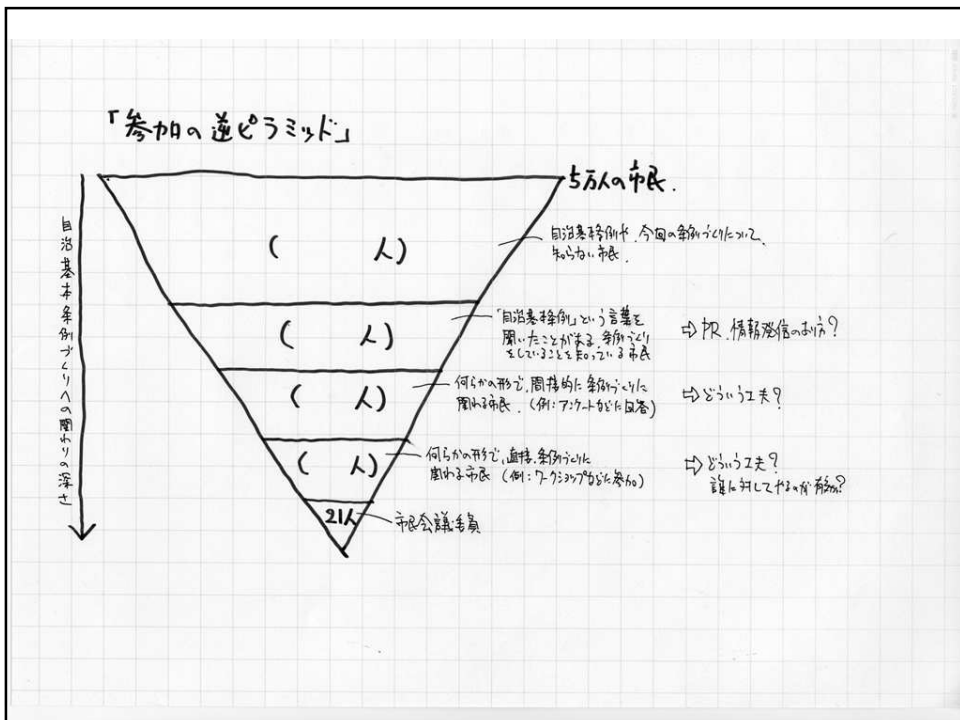 「参加の逆ピラミッド」
5万人の市民.
自治基本条例づくりへの関わりの深さ
(　　人)
自治基本条例や、今回の条例づくりについて、
知らない市民.
(　　人)
「自治基本条例」という言葉を
聞いたことがある、条例づくり
をしていることを知っている市民
⇨ PR、情報発信のあり方?
(　　人)
何らかの形で、間接的に条例づくりに
関わる市民. (例:アンケートなどに回答)
⇨ どういう工夫?
(　　人)
何らかの形で、直接、条例づくりに
関わる市民 (例:ワークショップなどに参加)
⇨ どういう工夫?
誰に対してやるのが有効か?
21人
市民会議委員